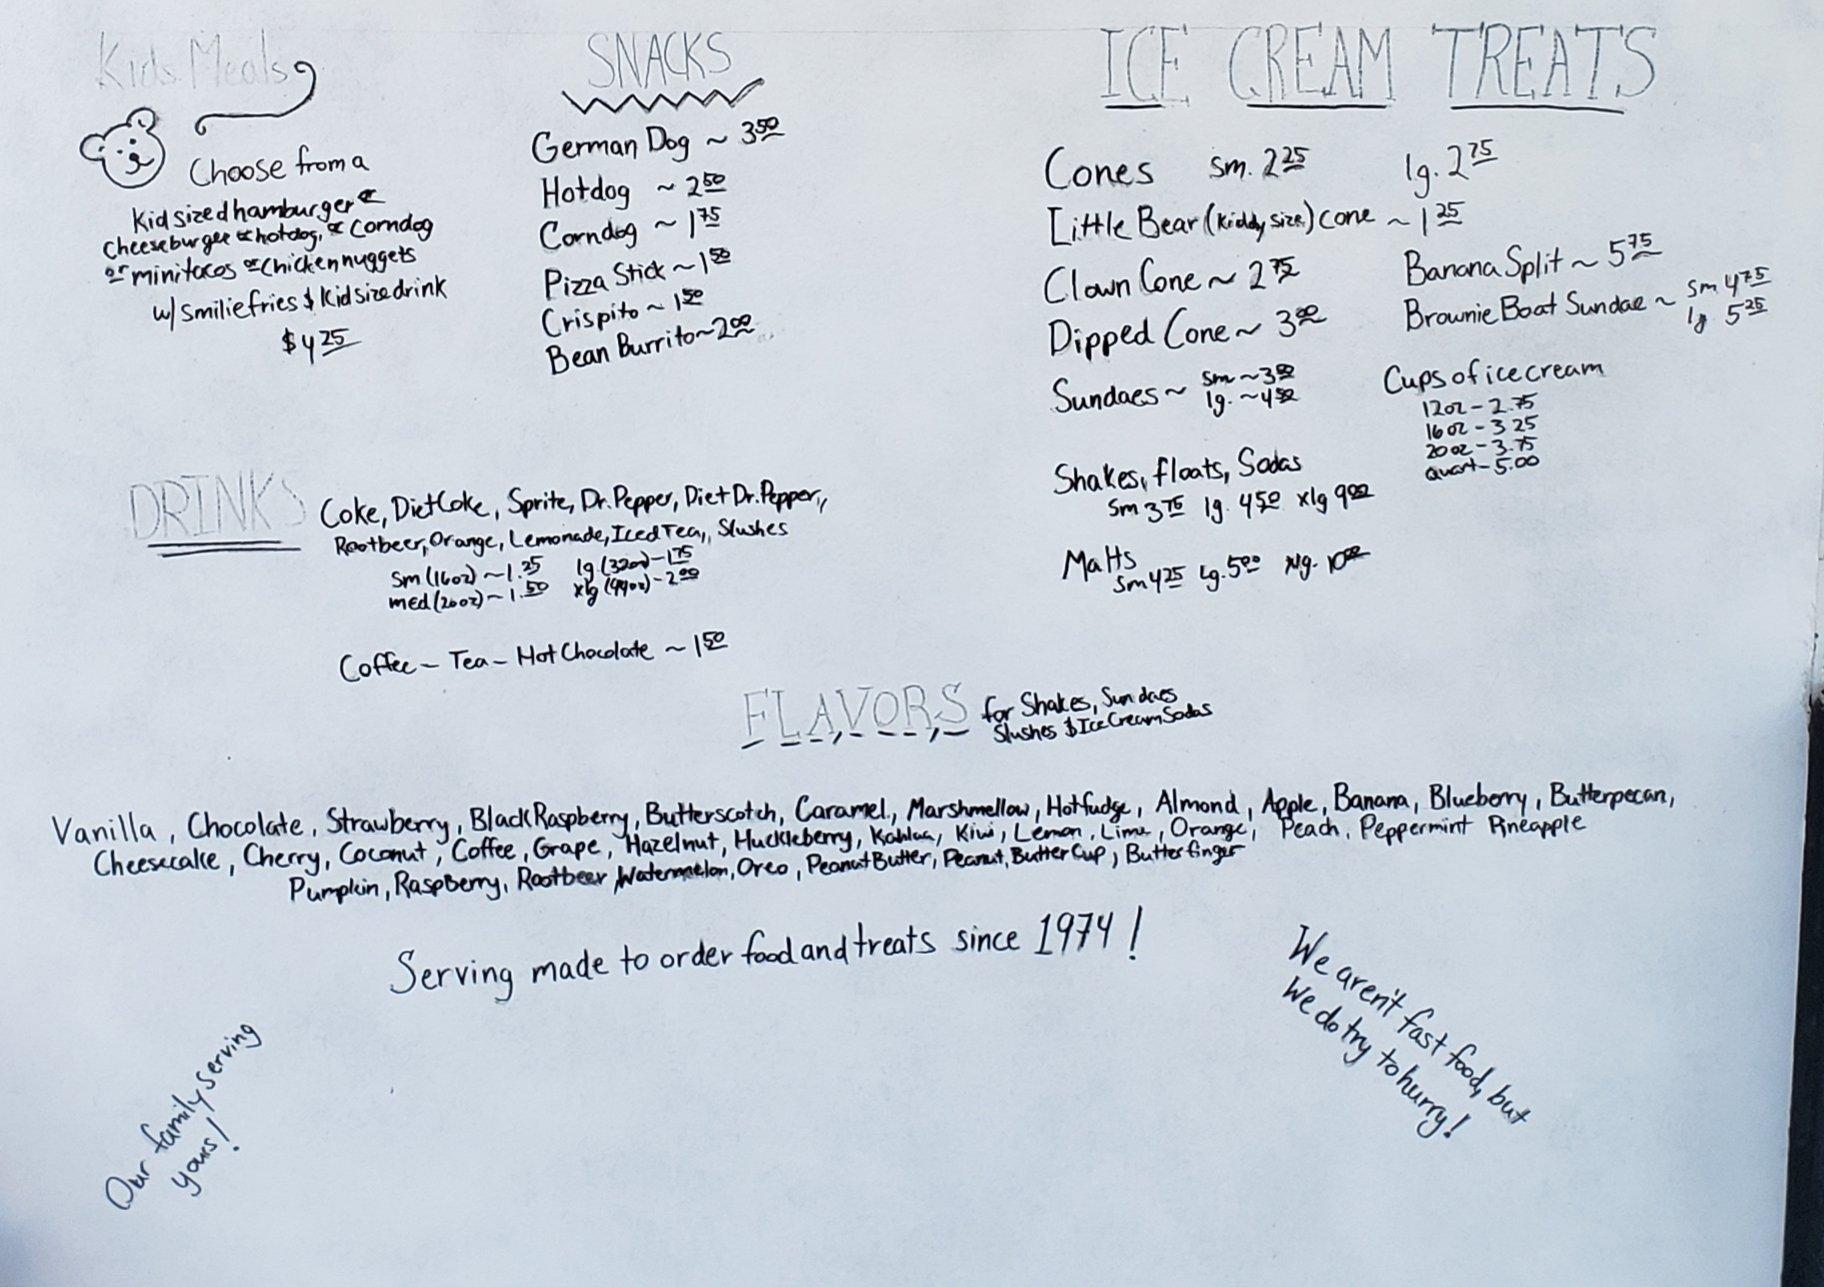 Kids Meals
Choose from a
Kid sized hamburger or
Cheeseburger or hotdog, or Corndog
or mini tacos or Chicken nuggets
w/ Smilie fries & Kid size drink
$4.25
SNACKS
German Dog ~ 3.50
Hotdog ~ 2.50
Corndog ~ 1.75
Pizza Stick ~ 1.50
Crispito ~ 1.50
Bean Burrito ~ 2.00
ICE CREAM TREATS
Cones sm. 2.25 lg. 2.75
Little Bear (Kiddy size) cone ~ 1.25
Clown Cone ~ 2.75
Dipped Cone ~ 3.00
Sundaes ~ sm ~ 3.50
lg. ~ 4.50
Banana Split ~ 5.75
Brownie Boat Sundae ~ sm 4.75
lg 5.25
Cups of ice cream
12oz - 2.75
16oz - 3.25
20oz - 3.75
Quart - 5.00
Shakes, floats, Sodas
Sm 3.75 lg. 4.50 xlg 9.00
Malts
Sm 4.25 Lg. 5.00 Xlg. 10.00
DRINKS
Coke, Diet Coke, Sprite, Dr. Pepper, Diet Dr. Pepper,
Rootbeer, Orange, Lemonade, Iced Tea, Slushes
sm (16oz) ~ 1.25 lg (32oz) - 1.75
med (20oz) ~ 1.50 xlg (44oz) - 2.00
Coffee - Tea - Hot Chocolate ~ 1.50
FLAVORS for Shakes, Sundaes
Slushes & Ice Cream Sodas
Vanilla, Chocolate, Strawberry, Black Raspberry, Butterscotch, Caramel, Marshmellow, Hotfudge, Almond, Apple, Banana, Blueberry, Butterpecan,
Cheesecake, Cherry, Coconut, Coffee, Grape, Hazelnut, Huckleberry, Kahlua, Kiwi, Lemon, Lime, Orange, Peach, Peppermint Pineapple
Pumpkin, Raspberry, Rootbeer, Watermelon, Oreo, Peanut Butter, Peanut Butter Cup, Butterfinger
Serving made to order food and treats since 1974!
Our family serving
yours!
We aren't fast food, but
We do try to hurry!